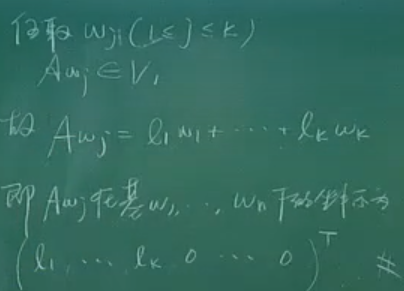 任取 wj, (1≤j≤k)
Awj∈V1
故 Awj = l1w1+···+lkwk
即 Awj在基w1,···,wn下的坐标示为
(l1 ··· lk 0 ··· 0)^T #